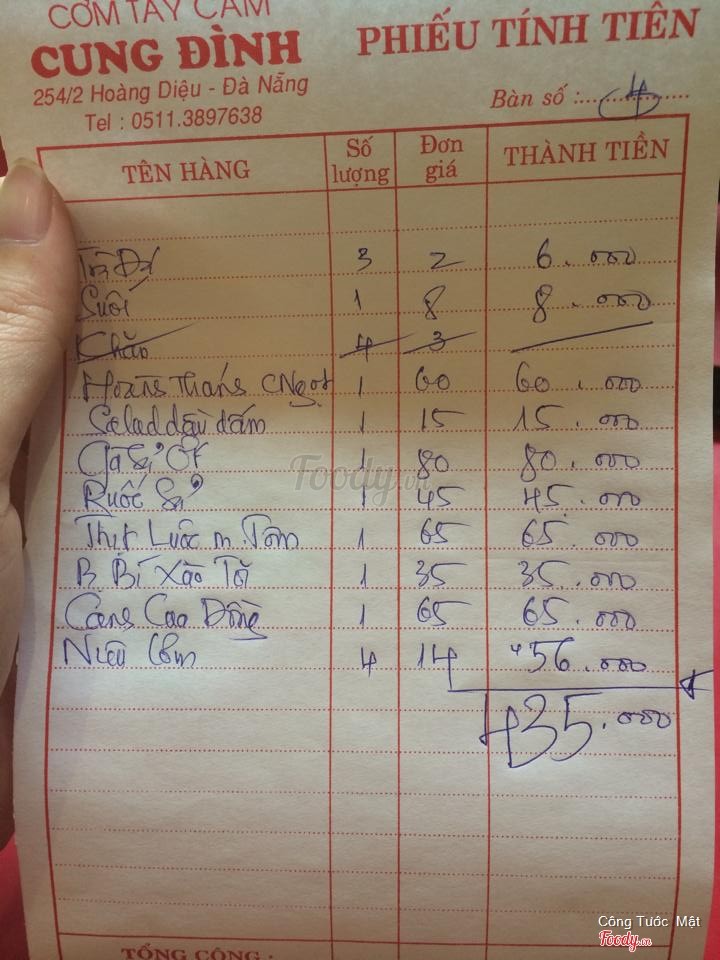 CƠM TAY CẦM
CUNG ĐÌNH
254/2 Hoàng Diệu - Đà Nẵng
Tel : 0511.3897638
PHIẾU TÍNH TIỀN
Bàn số : 4
TÊN HÀNG Số lượng Đơn giá THÀNH TIỀN
Trà Đá 3 2 6.000
Suối 1 8 8.000
Khăn 4 3
1 60 60.000
Salad dầu dấm 1 15 15.000
Gà Sả Ớt 1 80 80.000
Ruốc Sả 1 45 45.000
Thịt Luộc m. Tôm 1 65 65.000
B Bí Xào Tỏi 1 35 35.000
Cao 1 65 65.000
Niêu Cơm 4 14 56.000
435.000
TỔNG CỘNG :
Foody.vn
Công Tước Mật
Foody.vn